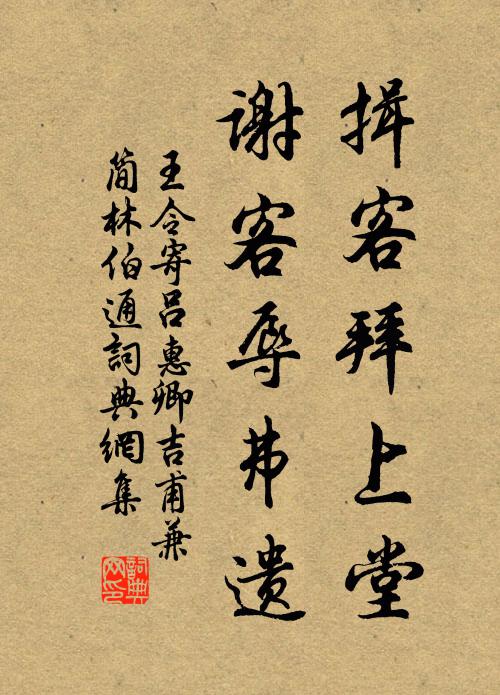 揖客拜上堂
谢客辱弗遗
王令寄吕惠卿吉甫兼
简林伯通詞典網集
詞典
网印